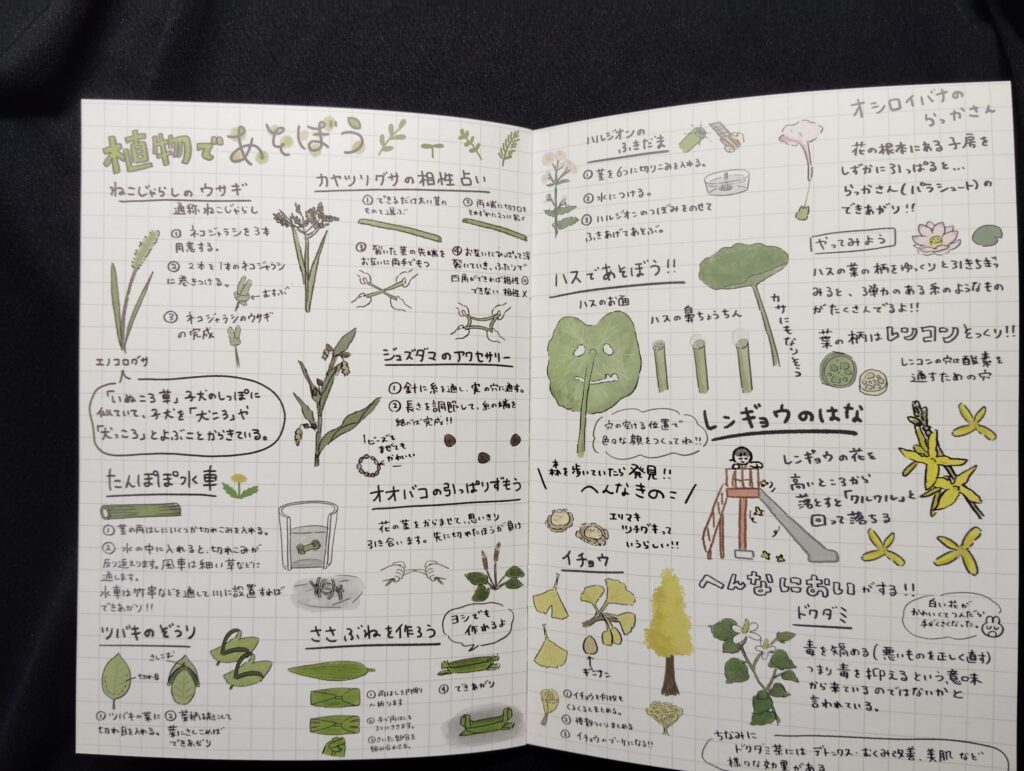 植物であそぼう
ねこじゃらしのウサギ
通称ねこじゃらし
① ネコジャラシを3本
用意する。
② 2本を1本のネコジャラシ
に巻きつける。
←むすぶ
③ ネコジャラシのウサギ
の完成
エノコログサ
「いぬころ草」子犬のしっぽに
似ていて、子犬を「犬ころ」や
「犬っころ」とよぶことからきている。
たんぽぽ水車
① 茎の両はしにいくつか切れこみを入れる。
② 水の中に入れると、切れこみが
反り返えります。風車は細い草などに
通します。
水車は竹串などを通して川に設置すれば
できあがり!!
ツバキのぞうり
切れ目
さしこむ
① ツバキの葉に
切れ目を入れる。
できあがり
カヤツリグサの相性占い
① できるだけ太い茎の
ものを選ぶ
③ 裂いた茎の先端を
お互いに両手でもつ
④ お互いにひっぱって
裂いていき、ふたりで
四角ができれば相性◎
できない 相性×
ジュズダマのアクセサリー
① 針に糸を通し、実の穴に通す。
② 長さを調節して、糸の端を
結べば完成!!
ビーズを
まぜても
かわいい
オオバコの引っぱりずもう
花の茎をからませて、思いきり
引き合います。先に切れたほうが負け
ささぶねを作ろう
ヨシでも
作れるよ
① 両はしを内側
へ折ります
④ できあがり
ハルジオンの
ふきだま
① 茎を6つに切りこみを入れる。
② 水につける。
③ ハルジオンのつぼみをのせて
ふきあげてあそぶ。
オシロイバナの
らっかさん
花の根本にある子房を
しずかに引っぱると…
らっかさん(パラシュート)の
できあがり!!
ハスであそぼう!!
ハスのお面
ハスの鼻ちょうちん
カサにもなりそう
穴の空ける位置で
色々な顔をつくってね!!
やってみよう
ハスの葉の柄をゆっくりと引きちぎって
みると、弾力のある糸のようなもの
がたくさんでるよ!!
葉の柄はレンコンそっくり!!
レンコンの穴は酸素を
通すための穴
森を歩いていたら発見!!
へんなきのこ
エリマキ
ツチグキって
いうらしい!!
レンギョウのはな
レンギョウの花を
高いところから
落とすと「クルクル」と
回って落ちる
イチョウ
ギンナン
① イチョウを何枚も
くるくるとまとめる。
② 複数つくりまとめる
③ イチョウのブーケになる!!
へんなにおいがする!!
ドクダミ
白い花が
かわいくてつんだら
手がくさくなった。
毒を矯める(悪いものを正しく直す)
つまり毒を抑えるという意味
から来ているのではないかと
言われている。
ちなみに
ドクダミ茶にはデトックス・むくみ改善、美肌など
様々な効果がある